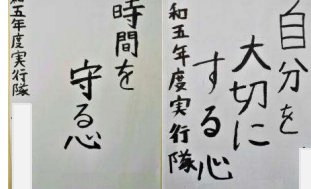 自分を
大切に
する心
和五年度実行隊
時間を
守る心
和五年度実行隊